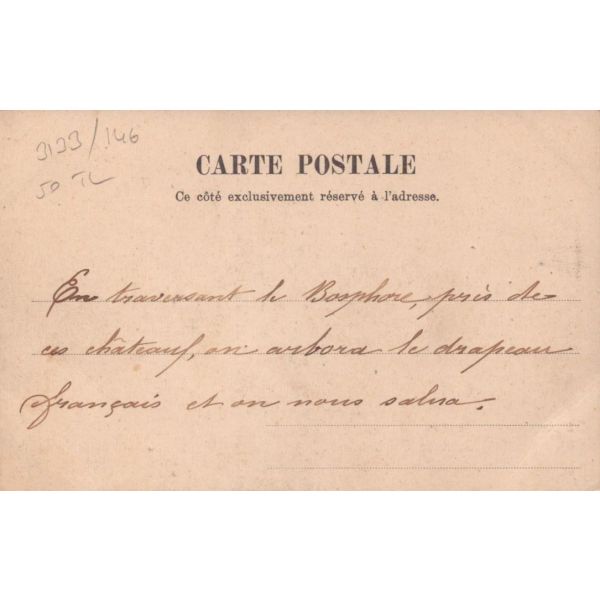 3133/146
50 TL
CARTE POSTALE
Ce côté exclusivement réservé à l'adresse.
En traversant le Bosphore, près de
ces châteaux, on arbora le drapeau
français et on nous salua.